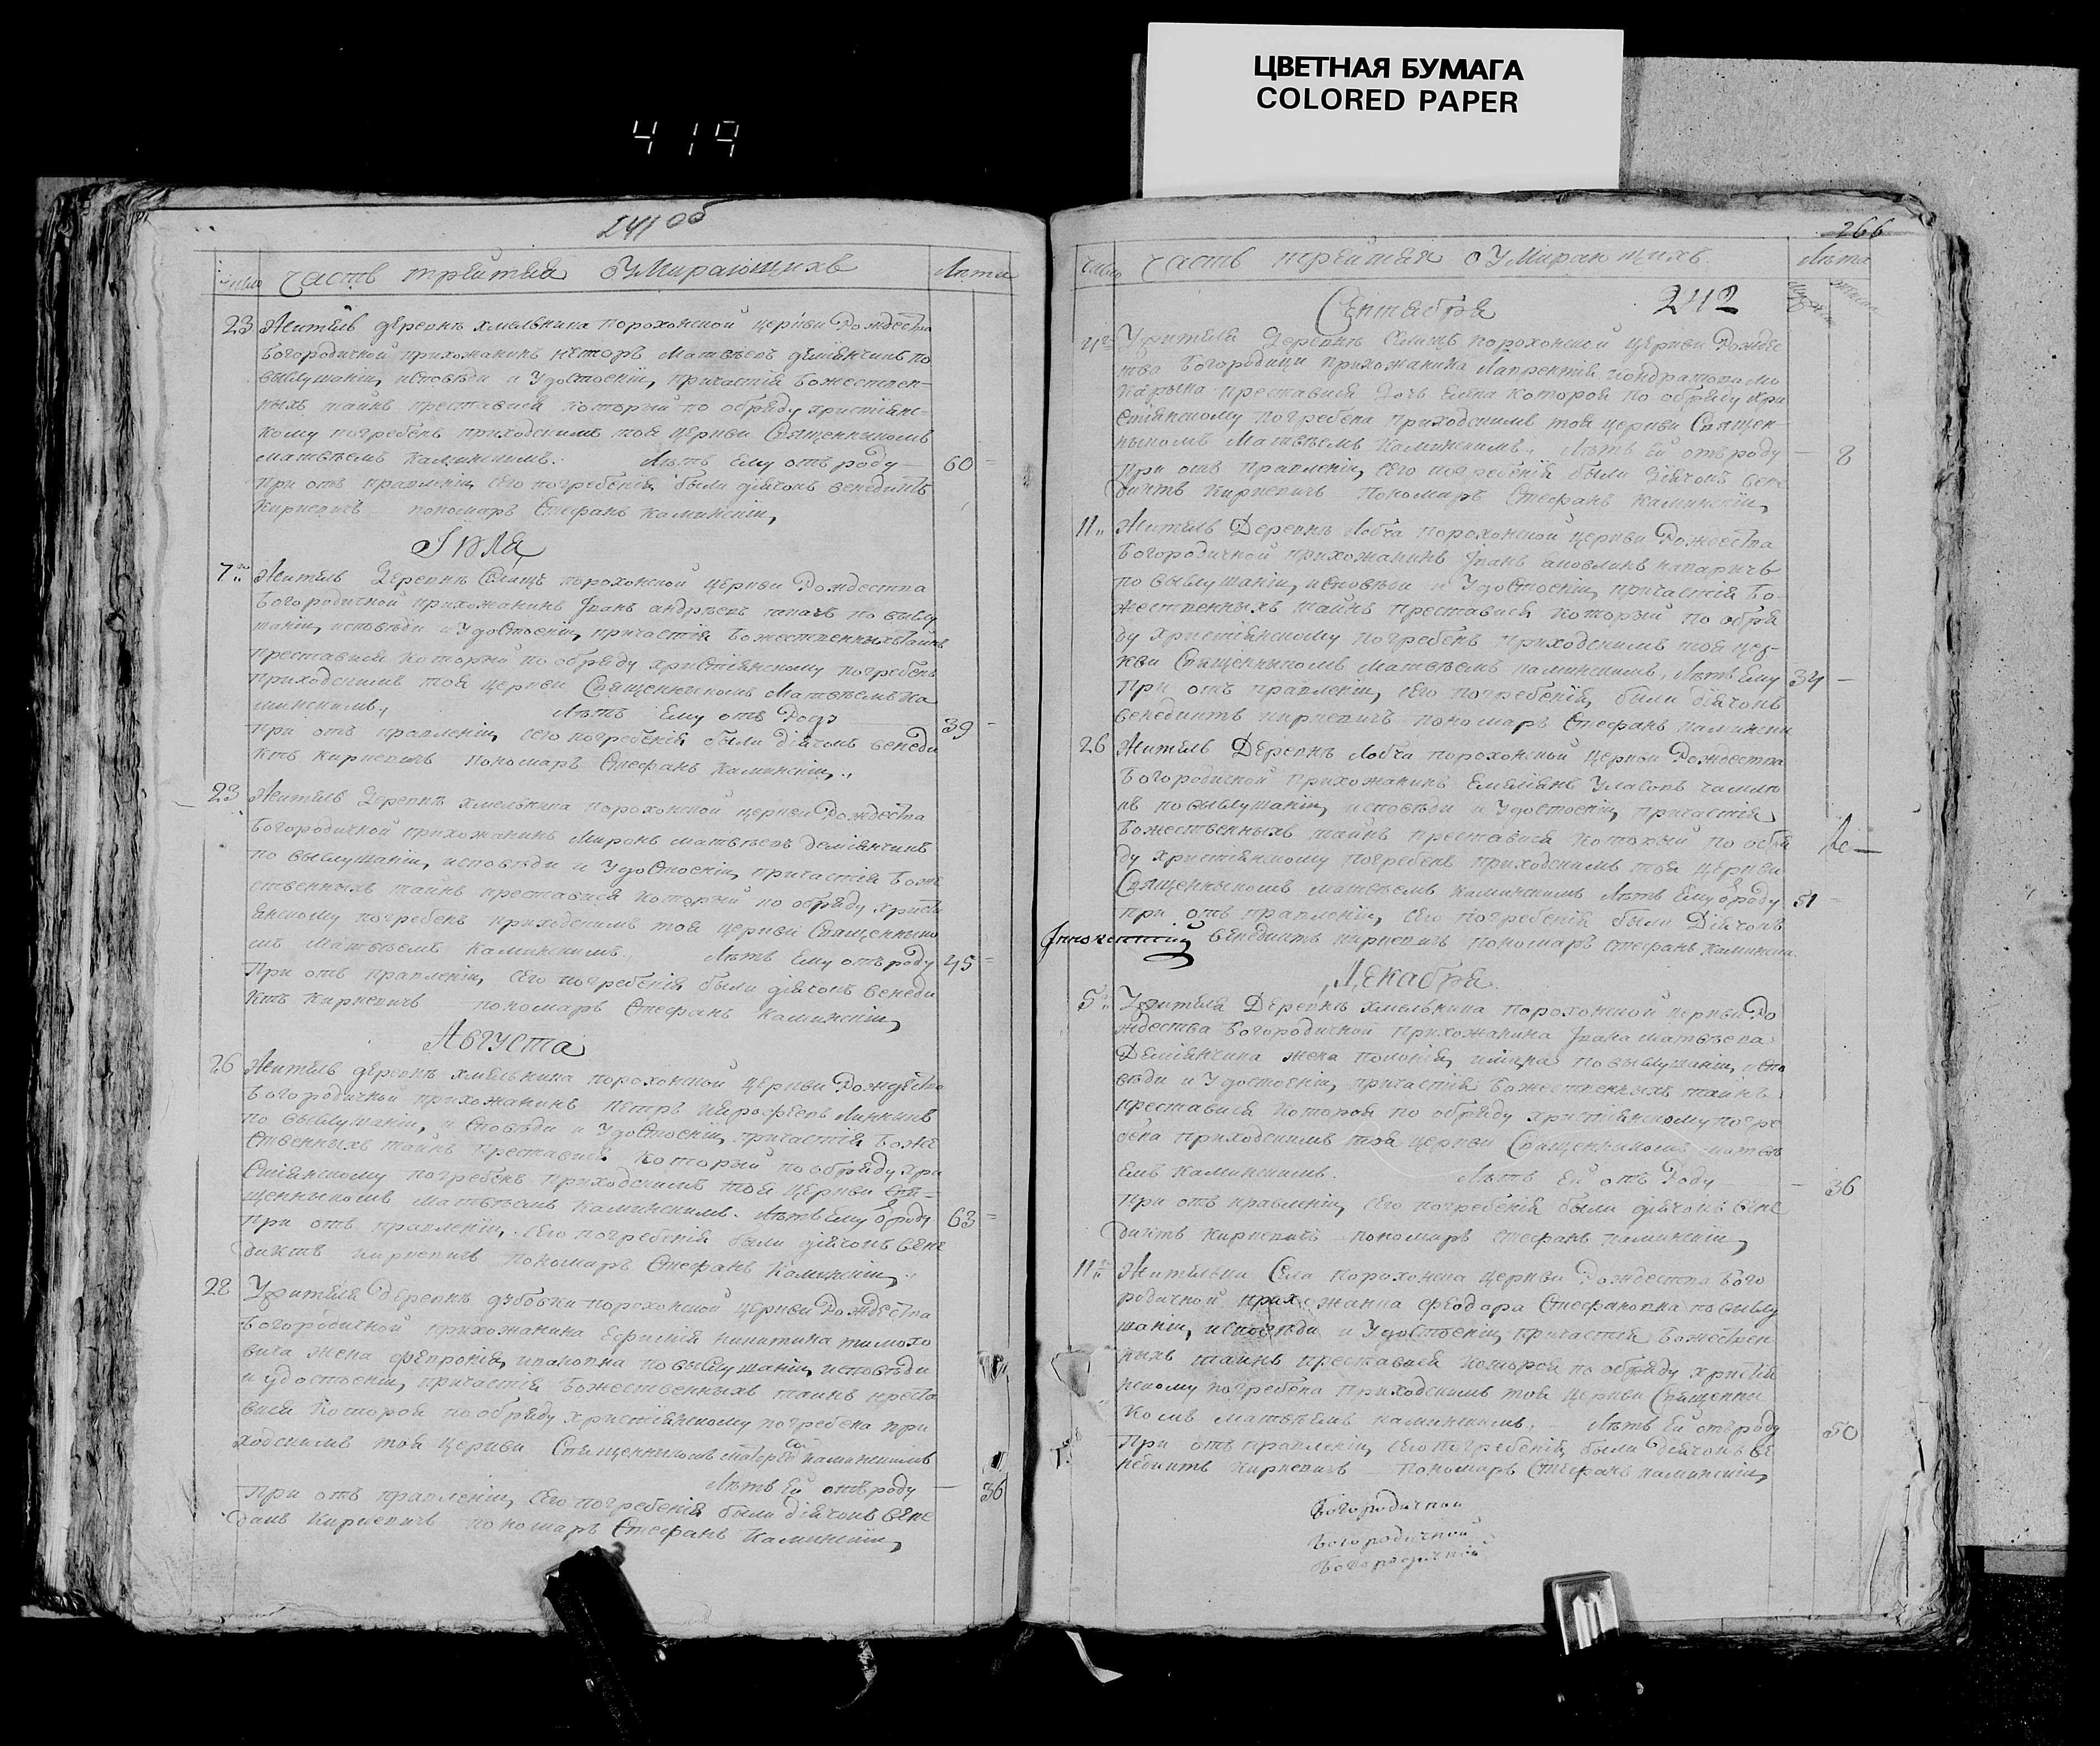 ЦВЕТНАЯ БУМАГА
COLORED PAPER
419
241 об
число Часть третия о умирающихъ Лета
23 Житель деревнѣ хмельника порохонской церкви Рождества
Богородичной прихожанинъ Матвѣевъ демянчикъ по
выслушаніи исповѣди и удостоеніи причастія Божествен-
ныхъ таинъ преставися который по обряду християнс-
кому погребенъ приходскимъ тоя церкви Священникомъ
матвѣемъ каминскимъ. Лѣтъ ему отъ роду 60
При отъ правленіи сего погребенія были діячокъ венедиктъ
Кирневичъ пономаръ Стефанъ каминскіи
Іюля
7 Житель деревнѣ Селищъ порохонской церкви Рождества
Богородичной прихожанинъ Іванъ андрѣевъ ткачъ по выслу
шаніи исповѣди и удостоеніи причастія Божественныхъ таинъ
преставися который по обряду християнскому погребенъ
приходскимъ тоя церкви Священникомъ Матвѣемъ ка
минскимъ. Лѣтъ ему отъ роду 39
При отъ правленіи сего погребенія были діячокъ венеди
ктъ кирневичъ пономаръ Стефанъ каминскіи
23 Житель деревнѣ хмельника порохонской церкви Рождества
Богородичной прихожанинъ Миронъ матвѣевъ демянчикъ
по выслушаніи исповѣди и удостоеніи причастія боже
ственныхъ таинъ преставися который по обряду христи
янскому погребенъ приходскимъ тоя церкви Священнико
мъ матвѣемъ каминскимъ. Лѣтъ ему отъ роду 45
При отъ правленіи сего погребенія были діячокъ венеди
ктъ кирневичъ пономаръ Стефанъ каминскіи
Августа
26 Житель деревнѣ хмельника порохонской церкви Рождество
Богородичной прихожанинъ петръ
по выслушаніи исповѣди и удостоеніи причастія Боже
ственныхъ таинъ преставися который по обряду хри
стіянскому погребенъ приходскимъ тоя церкви Свя-
щенникомъ матвѣемъ каминскимъ. Лѣтъ ему о роду 63
При отъ правленіи сего погребенія были діячокъ вене
диктъ кирневичъ пономаръ Стефанъ каминскіи
28 У жителя деревнѣ дубовки порохонской церкви Рождества
Богородичной прихожанина никитина тимохо
вича жена по выслушаніи исповѣди
и удостоеніи причастія Божественныхъ таинъ преста
вися которая по обряду християнскому погребена при
ходскимъ тоя церкви Священникомъ каминскимъ
Лѣтъ ей отъ роду 36
При отъ правленіи сего погребенія были діячокъ вене
кирневичъ пономаръ Стефанъ каминскіи
266
число Часть третия о умирающихъ Лѣта
Сентабря 242
4 У жителя деревнѣ Селищъ порохонской церкви Рождес
тва Богородици прихожанина Лаврентія кондратова
преставися дочь которой по обряду хри
стіянскому погребена приходскимъ тоя церкви Священ-
никомъ матвѣемъ каминскимъ. Лѣтъ ей отъ роду 8
При отъ правленіи сего погребенія были діячокъ вене
диктъ кирневичъ пономаръ Стефанъ каминскіи
11 Житель деревнѣ Лобча порохонской церкви Рождества
Богородичной прихожанинъ Іванъ
по выслушаніи исповѣди и удостоеніи причастія Бо-
жественныхъ таинъ преставися который по обря
ду християнскому погребенъ приходскимъ тоя цер-
кви Священникомъ матвѣемъ каминскимъ. Лѣтъ ему 34
При отъ правленіи сего погребенія были діячокъ
венедиктъ кирневичъ пономаръ Стефанъ каминскіи
26 Житель деревнѣ Лобча порохонской церкви Рождества
Богородичной прихожанинъ Емелянъ
по выслушаніи исповѣди и удостоеніи причастія
Божественныхъ таинъ преставися который по обря
ду християнскому погребенъ приходскимъ тоя церкви
Священникомъ матвѣемъ каминскимъ Лѣтъ ему о роду 51
при отъ правленіи сего погребенія были діячокъ
венедиктъ кирневичъ пономаръ стефанъ каминскіи
Декабря
5 У жителя деревнѣ хмельника порохонской церкви Ро
ждества Богородичной прихожанина Івана матвѣева
Демянчика жена по выслушаніи испо
вѣди и удостоеніи причастія Божественныхъ таинъ
преставися которая по обряду християнскому погре
бена приходскимъ тоя церкви Священникомъ матвѣ
емъ каминскимъ. Лѣтъ ей отъ Роду 36
При отъ правленіи сего погребенія были діячокъ вене
диктъ кирневичъ пономаръ стефанъ каминскіи
11 Села порохонска церкви Рождества Бого
родичной прихожанка феодора Стефановна по выслу
шаніи исповѣди и удостоеніи причастія Божествен
ныхъ таинъ преставися которая по обряду християн
скому погребена приходскимъ тоя церкви Священни
комъ матвѣемъ каминскимъ. Лѣтъ ей отъ роду 50
При отъ правленіи сего погребенія были діячокъ ве
недиктъ кирневичъ пономаръ Стефанъ каминскіи
Богородичной
Богородичной
Богородичной